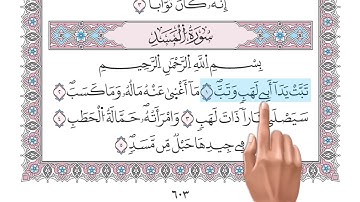 إِنَّهُۥ كَانَ تَوَّابًۢا ٣
سُورَةُ الْمَسَدِ
بِسْمِ ٱللَّهِ ٱلرَّحْمَٰنِ ٱلرَّحِيمِ
تَبَّتْ يَدَآ أَبِى لَهَبٍ وَتَبَّ ١ مَآ أَغْنَىٰ عَنْهُ مَالُهُۥ وَمَا كَسَبَ ٢
سَيَصْلَىٰ نَارًا ذَاتَ لَهَبٍ ٣ وَٱمْرَأَتُهُۥ حَمَّالَةَ ٱلْحَطَبِ ٤
فِى جِيدِهَا حَبْلٌ مِّن مَّسَدٍۭ ٥
٦٠٣